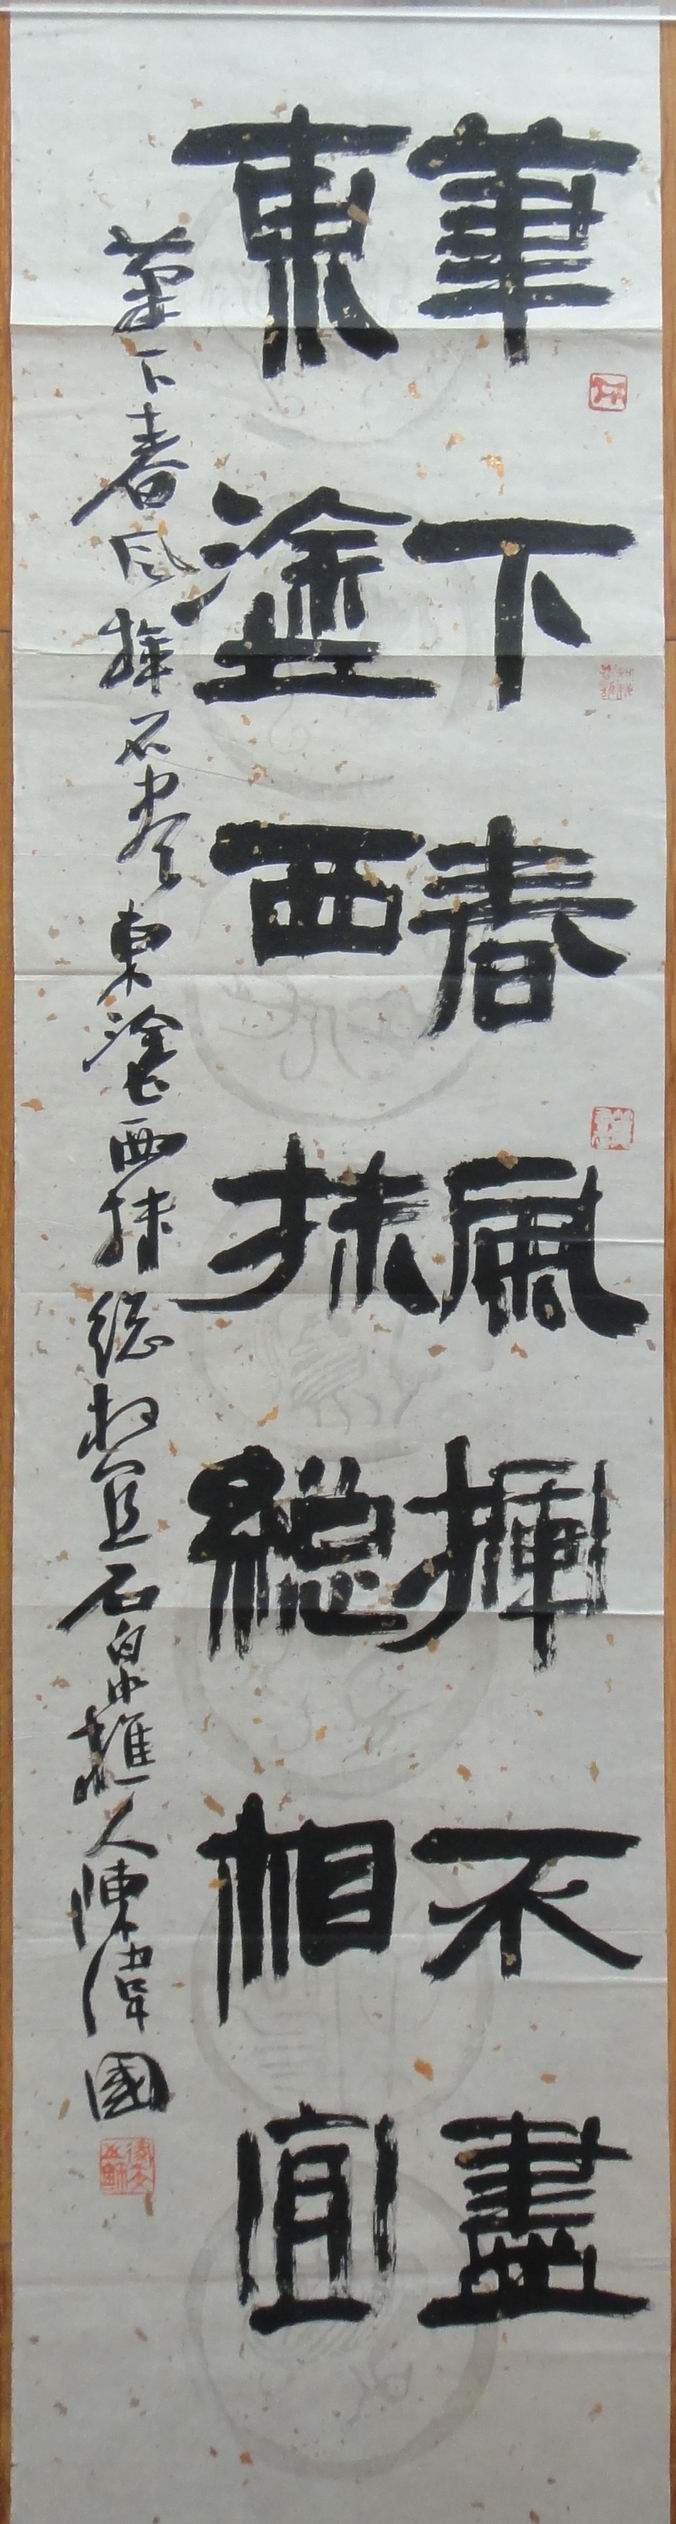 筆下春風揮不盡
東塗西抹總相宜
筆下春风揮不盡東塗西抹總相宜石皇樵人陳偉國